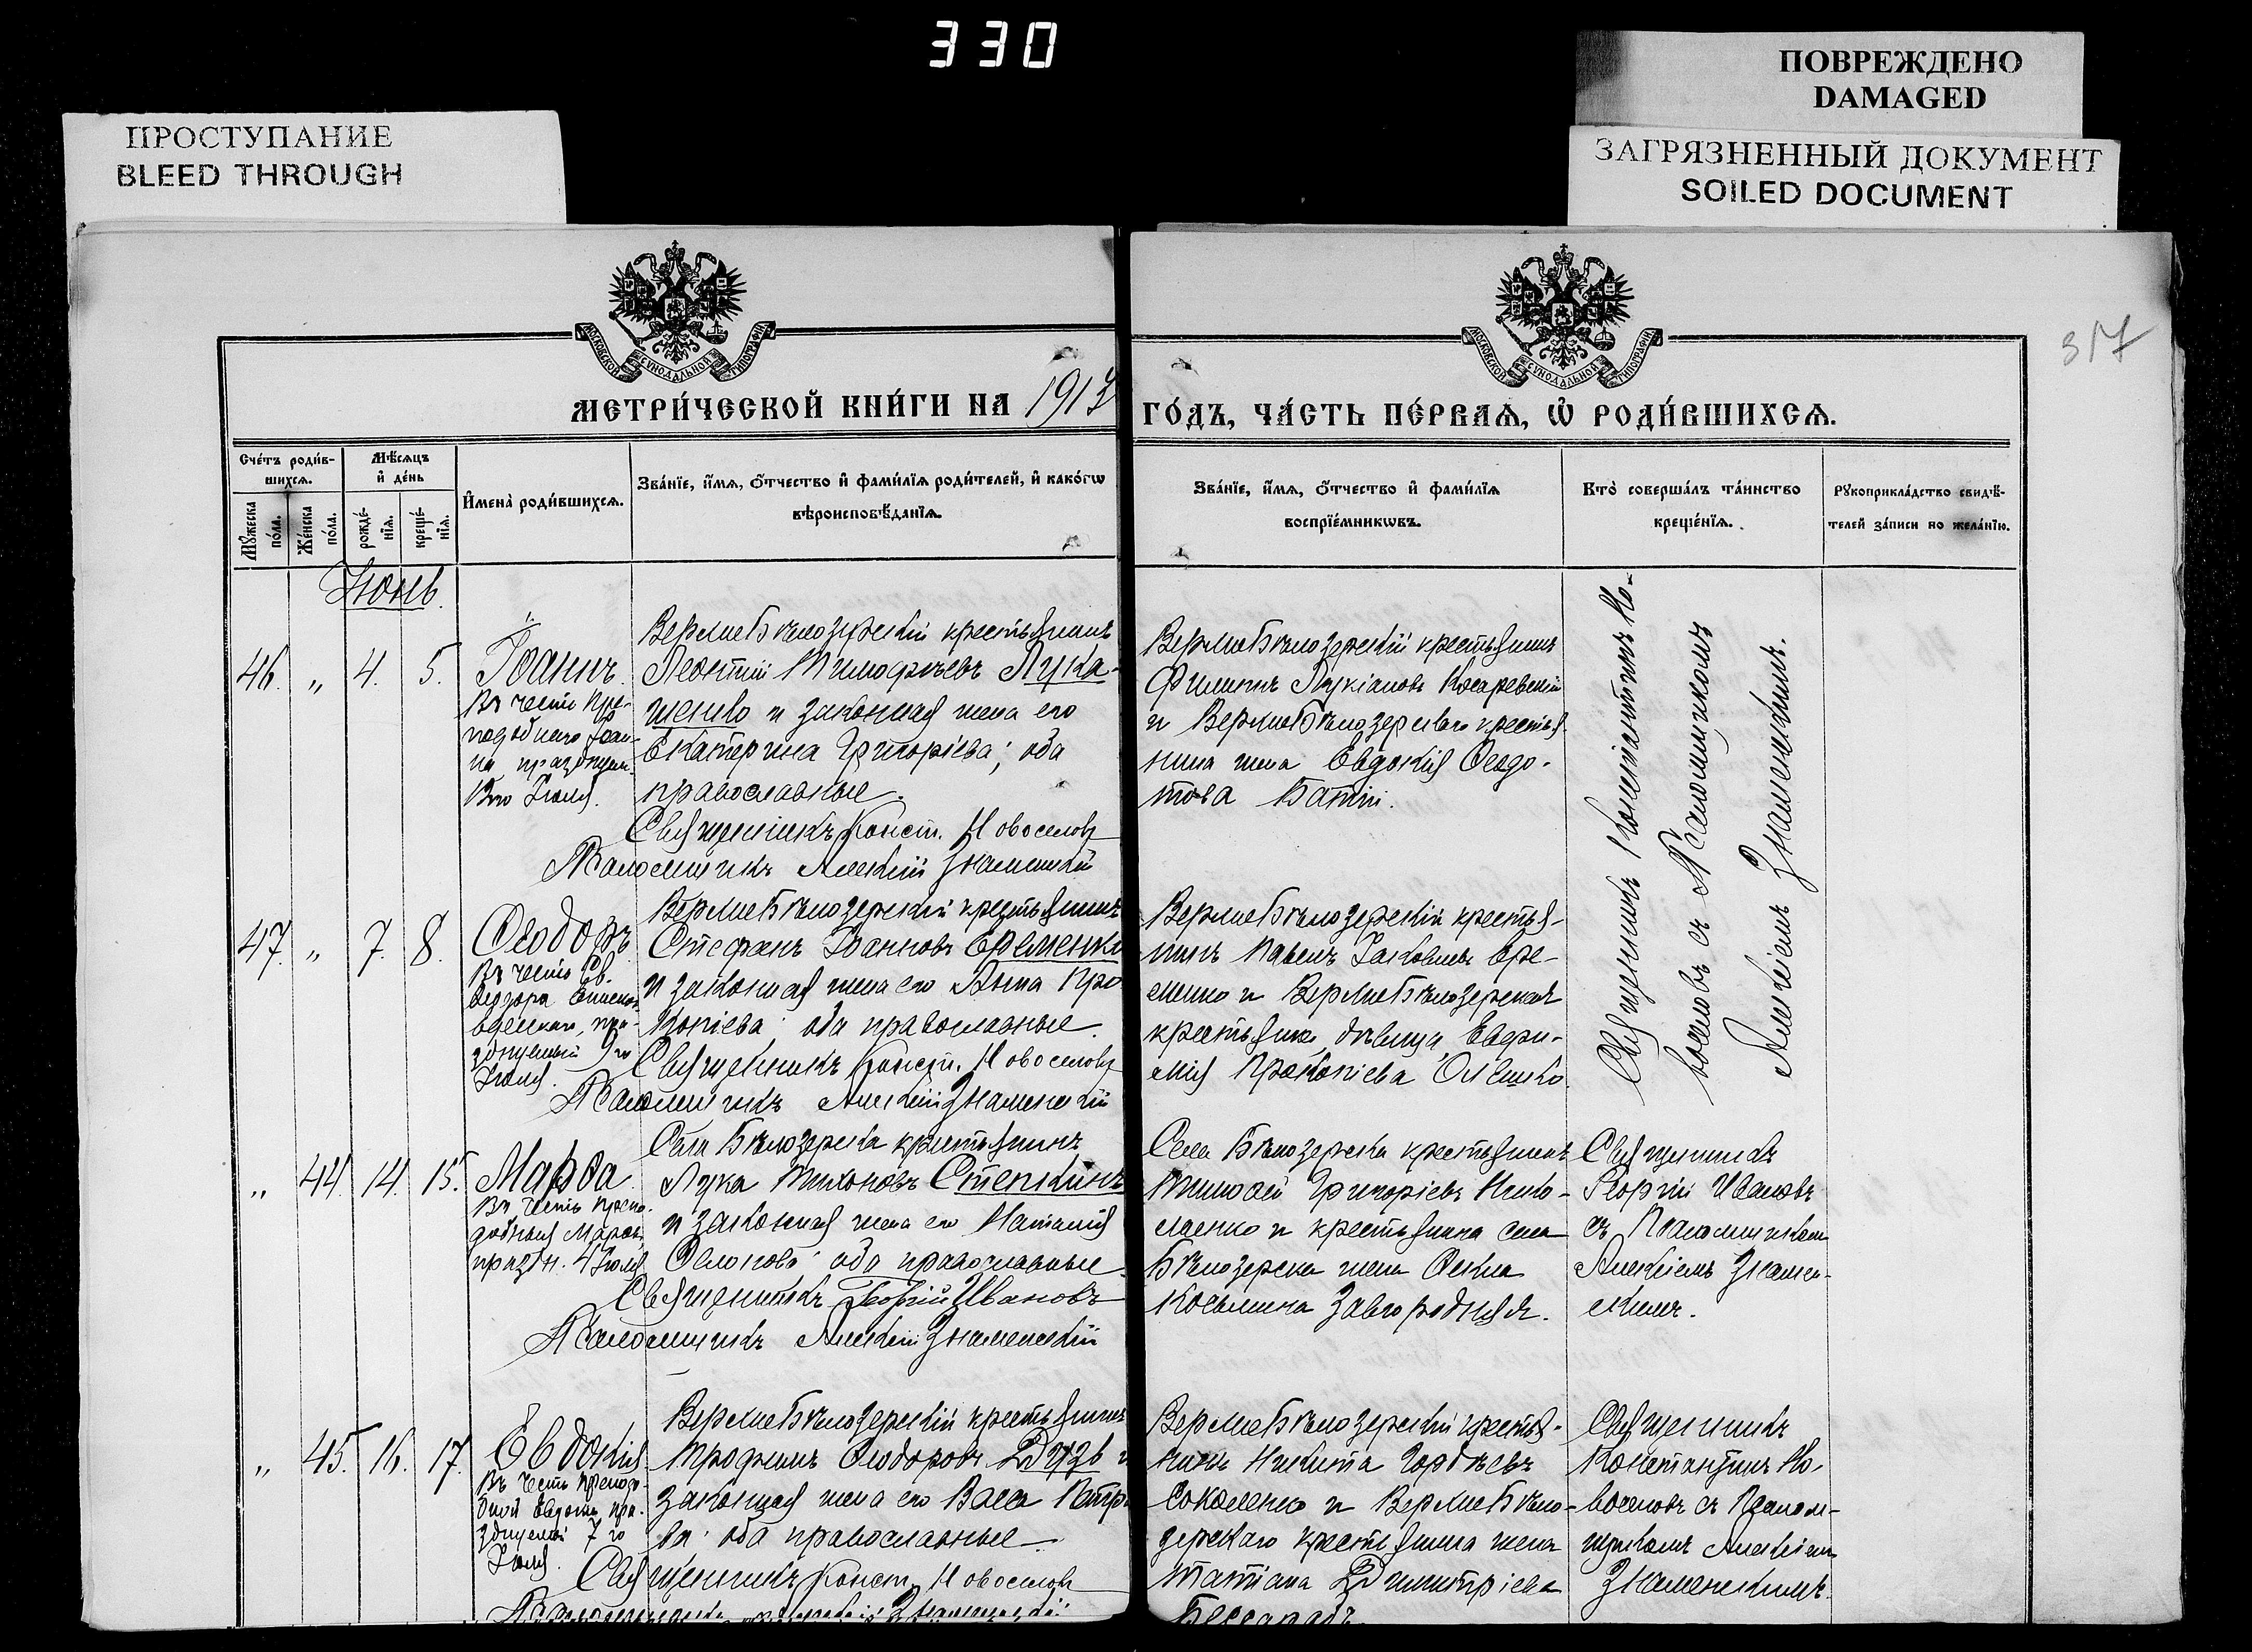 330
ПРОСТУПАНИЕ
BLEED THROUGH
ПОВРЕЖДЕНО
DAMAGED
ЗАГРЯЗНЕННЫЙ ДОКУМЕНТ
SOILED DOCUMENT
317
МОСКОВСКОЙ СѴНОДАЛЬНОЙ ТИПОГРАФІИ
МОСКОВСКОЙ СѴНОДАЛЬНОЙ ТИПОГРАФІИ
МЕТРИ́ЧЕСКОЙ КНИ́ГИ НА 1913
ГО́ДЪ, ЧА́СТЬ ПЕ́РВАѦ, Ѡ҆ РОДИ́ВШИХСѦ.
Счéтъ роди́в-
шихсѧ.
Мꙋ́жеска по́ла.
Же́нска по́ла.
Мѣ́сѧцъ
и҆ де́нь
рожде́-нїѧ.
креще́-нїѧ.
И҆мена̀ роди́вшихсѧ.
Зва́нїе, и҆́мѧ, ѻ҆́тчество и҆ фами́лїѧ роди́телей, и҆ како́гѡ
вѣроисповѣ́данїѧ.
Зва́нїе, и҆́мѧ, ѻ҆́тчество и҆ фами́лїѧ
воспрїе́мникѡвъ.
Кто̀ соверша́лъ та́инство
креще́нїѧ.
Рꙋкоприкла́дство свидѣ́-
телей за́писи по жела́нїю.
Іюнь.
46. „ 4. 5.
Іоаннъ.
Въ честь Пре-
подобнаго Іоан-
на празднуем.
Іюля.
Верхнебѣлозерскій крестьянинъ
Леонтій Тимофѣевъ Лука-
шенко и законная жена его
Екатерина Григоріева; оба
православные.
Священникъ Конст. Новоселовъ
Псаломщикъ Алексій Знаменскій
Верхнебѣлозерскій крестьянинъ
Филиппъ Лукіановъ Косаревскій
и Верхнебѣлозерскаго крестья-
нина жена Евдокія Ѳеодо-
това
Священникъ Константинъ Но-
воселовъ съ Псаломщикомъ
Алексіемъ Знаменскимъ.
47. „ 7. 8.
Ѳеодоръ
Въ честь Св.
Ѳеодора Епископа
Едесскаго, пра-
зднуемый 9 го
Іюля.
Верхнебѣлозерскій крестьянинъ
Стефанъ Іоанновъ Еременко
и законная жена его Анна Про-
копіева; оба православные.
Священникъ Конст. Новоселовъ
Псаломщикъ Алексій Знаменскій
Верхнебѣлозерскій крестья-
нинъ Павелъ Іаковлевъ Ере-
менко и Верхнебѣлозерская
крестьянка дѣвица Евфи-
мія Прокопіева
„ 44. 14. 15.
Марѳа.
Въ честь Препо-
добныя Марѳы,
праздн. 4 Іюля
Села Бѣлозерска крестьянинъ
Лука Тихоновъ Степкинъ
и законная жена его Наталія
оба православные.
Священникъ Георгій Ивановъ
Псаломщикъ Алексій Знаменскій
Села Бѣлозерска крестьянинъ
Тимоѳей Григоріевъ Нико-
лаенко и крестьянина села
Бѣлозерска жена Ѳекла
Косьмина Завгородняя.
Священникъ
Георгій Ивановъ
съ Псаломщикомъ
Алексіемъ Знамен-
скимъ.
„ 45. 16. 17.
Евдокія.
Въ честь Преподо-
бной Евдокіи, пра-
зднуемой 7 го
Іюля.
Верхнебѣлозерскій крестьянинъ
Трофимъ Ѳеодоровъ Дузь и
законная жена его Васса Петро-
ва; оба православные.
Священникъ Конст. Новоселовъ
Псаломщикъ Алексій Знаменскій
Верхнебѣлозерскій крестья-
нинъ Никита Гордѣевъ
Соколенко и Верхнебѣло-
зерскаго крестьянина жена
Татіана Димитріева
Священникъ
Константинъ Но-
воселовъ съ Псалом-
щикомъ Алексіемъ
Знаменскимъ.